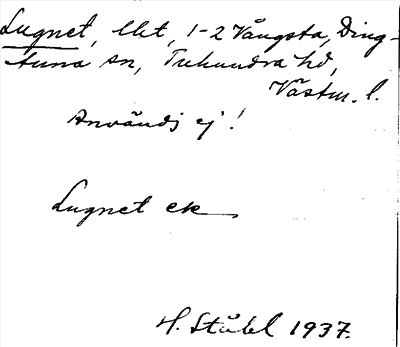 Lugnet, lht, 1-2 Vångsta, Ding-
tuna sn, Tuhundra hd,
Västm. l.
Användj ej!
Lugnet ek
H. Ståhl 1937.